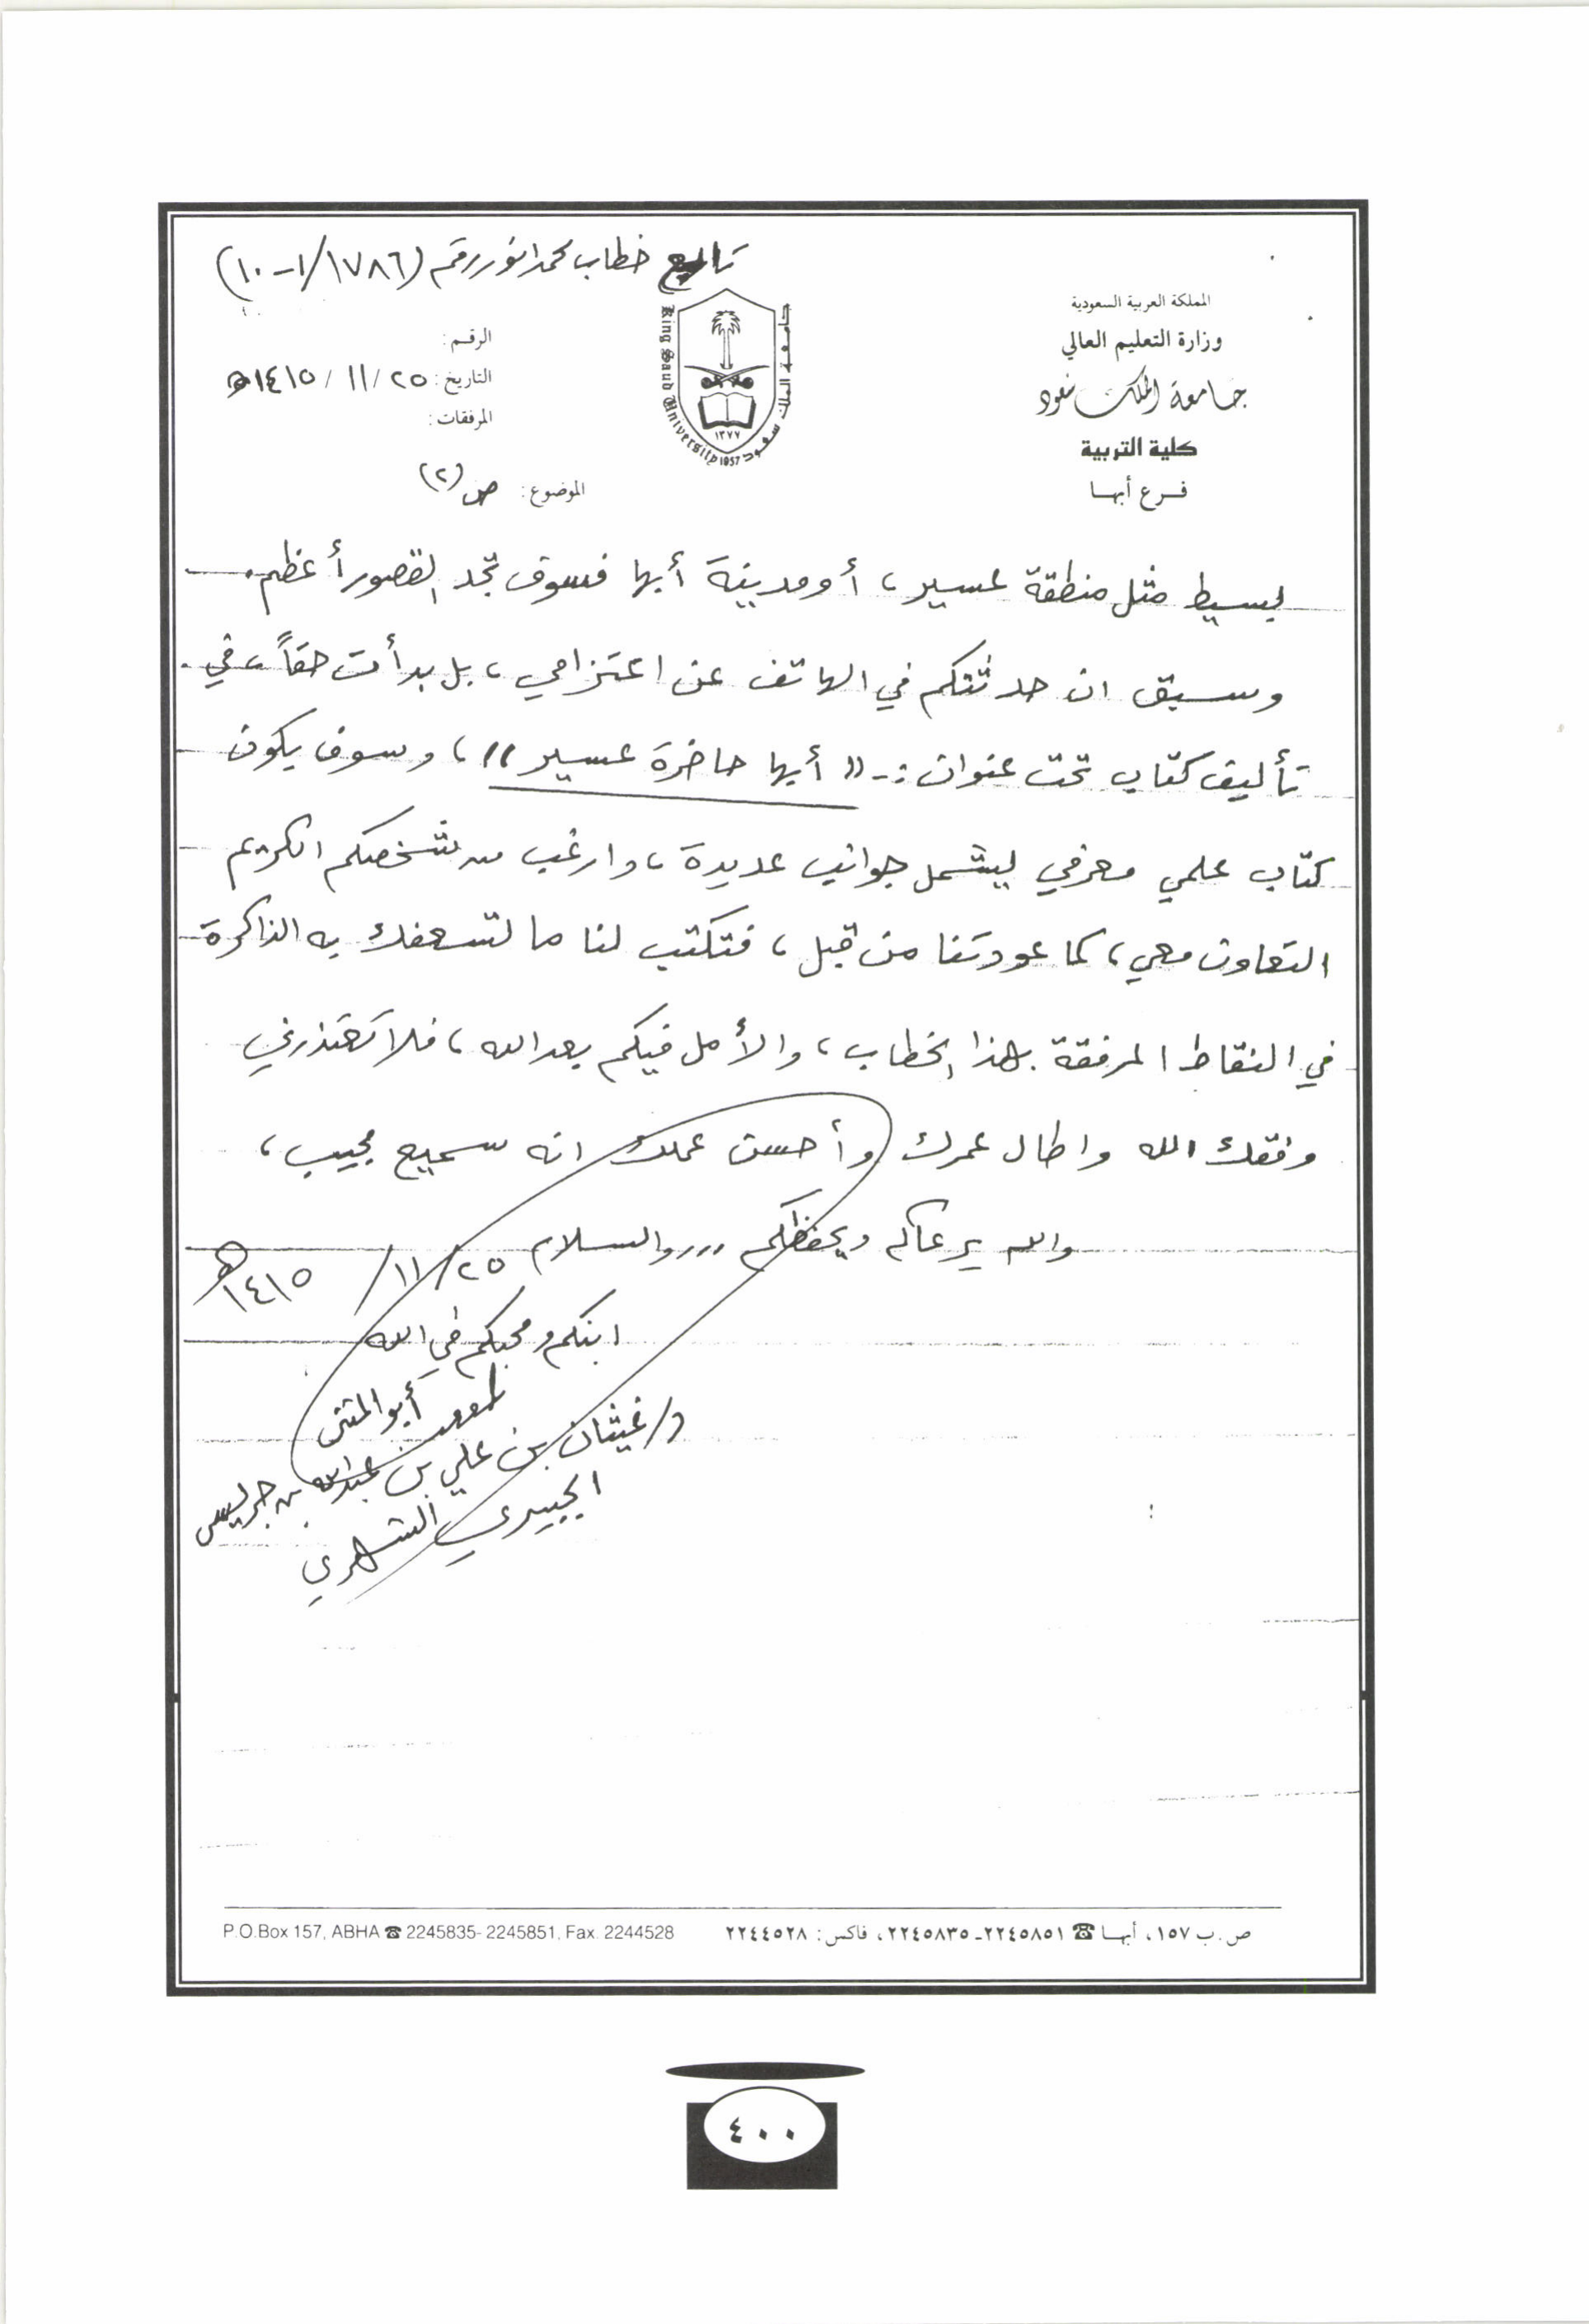 تابع خطاب محمد انور رقم (١٧٨٦/١-١٠)
المملكة العربية السعودية
وزارة التعليم العالي
جامعة الملك سعود
كلية التربية
فرع أبها
جامعة الملك سعود
King Saud University 1957
١٣٧٧
الرقم:
التاريخ: ٢٥/ ١١/ ١٤١٥هـ
المرفقات:
الموضوع: ص (٢)
بسيط مثل منطقة عسير، أو مدينة أبها فسوف تجد القصور أعظم.
وسبق ان حدثتكم في الهاتف عن اعتزامي، بل بدأت حقاً، في
تأليف كتاب تحت عنوان :- "أبها حاضرة عسير"، وسوف يكون
كتاب علمي معرفي ليشمل جوانب عديدة، وارغب من شخصكم الكريم
التعاون معي، كما عودتنا من قبل، فتكتب لنا ما تسعفك به الذاكرة
في النقاط المرفقة بهذا الخطاب، والأمل فيكم بعد الله، فلا تعتذرني
وفقك الله واطال عمرك وأحسن عملك انه سميع مجيب،
والله يرعاكم ويحفظكم ,,,, والسلام ٢٥/ ١١/ ١٤١٥هـ
ابنكم ومحبكم في الله
أبو المثنى
د/ غيثان بن علي بن عبدالله بن جريس
الجبيري الشهري
ص.ب ١٥٧، أبها ☎ ٢٢٤٥٨٥١-٢٢٤٥٨٣٥، فاكس: ٢٢٤٤٥٢٨
P.O.Box 157, ABHA ☎ 2245835-2245851, Fax. 2244528
٤٠٠